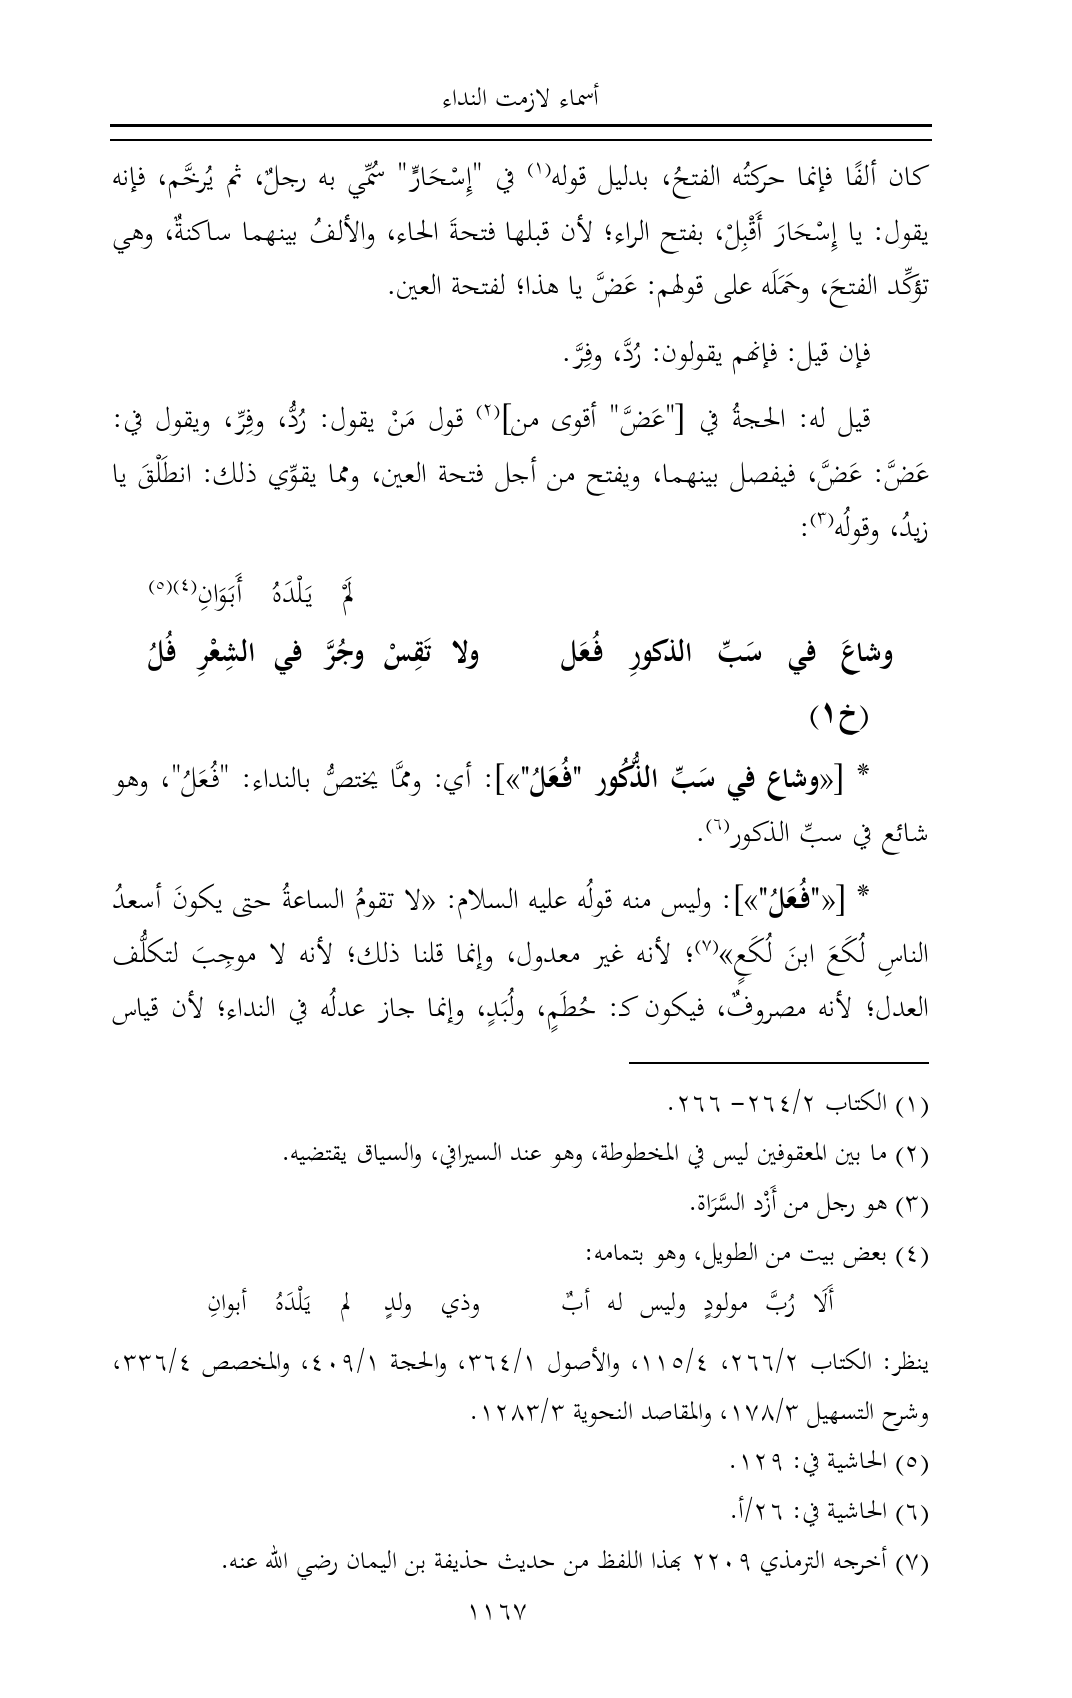 أسماء لازمت النداء
كان ألفًا فإنما حركتُه الفتحُ، بدليل قوله(١) في "إِسْحَارٍّ" سُمِّي به رجلٌ، ثم يُرخَّم، فإنه
يقول: يا إِسْحَارَ أَقْبِلْ، بفتح الراء؛ لأن قبلها فتحةَ الحاء، والألفُ بينهما ساكنةٌ، وهي
تؤكِّد الفتحَ، وحَمَلَه على قولهم: عَضَّ يا هذا؛ لفتحة العين.
فإن قيل: فإنهم يقولون: رُدَّ، وفِرَّ.
قيل له: الحجةُ في ["عَضَّ" أقوى من](٢) قول مَنْ يقول: رُدُّ، وفِرِّ، ويقول في:
عَضَّ: عَضَّ، فيفصل بينهما، ويفتح من أجل فتحة العين، ومما يقوِّي ذلك: انطَلْقَ يا
زيدُ، وقولُه(٣):
لَمْ يَلْدَهُ أَبَوَانِ(٤)(٥)
وشاعَ في سَبِّ الذكورِ فُعَل ولا تَقِسْ وجُرَّ في الشِعْرِ فُلُ
(خ١)
* [«وشاع في سَبِّ الذُّكُور "فُعَلُ"»]: أي: وممَّا يختصُّ بالنداء: "فُعَلُ"، وهو
شائع في سبِّ الذكور(٦).
* [«"فُعَلُ"»]: وليس منه قولُه عليه السلام: «لا تقومُ الساعةُ حتى يكونَ أسعدُ
الناسِ لُكَعَ ابنَ لُكَعٍ»(٧)؛ لأنه غير معدول، وإنما قلنا ذلك؛ لأنه لا موجِبَ لتكلُّف
العدل؛ لأنه مصروفٌ، فيكون كـ: حُطَمٍ، ولُبَدٍ، وإنما جاز عدلُه في النداء؛ لأن قياس
(١) الكتاب ٢/٢٦٤– ٢٦٦.
(٢) ما بين المعقوفين ليس في المخطوطة، وهو عند السيرافي، والسياق يقتضيه.
(٣) هو رجل من أَزْد السَّرَاة.
(٤) بعض بيت من الطويل، وهو بتمامه:
أَلَا رُبَّ مولودٍ وليس له أبٌ وذي ولدٍ لم يَلْدَهُ أبوانِ
ينظر: الكتاب ٢/٢٦٦، ٤/١١٥، والأصول ١/٣٦٤، والحجة ١/٤٠٩، والمخصص ٤/٣٣٦،
وشرح التسهيل ٣/١٧٨، والمقاصد النحوية ٣/١٢٨٣.
(٥) الحاشية في: ١٢٩.
(٦) الحاشية في: ٢٦/أ.
(٧) أخرجه الترمذي ٢٢٠٩ بهذا اللفظ من حديث حذيفة بن اليمان رضي الله عنه.
١١٦٧